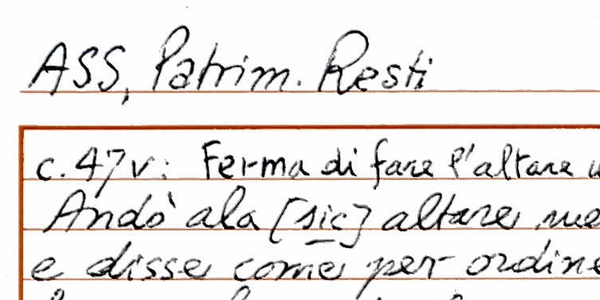 ASS, Patrim. Resti
c. 47v: Ferma di fare l'altare
Andò ala [sic] altare
e disse come per ordine